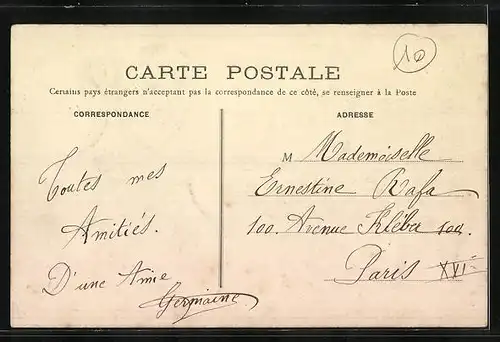 10
CARTE POSTALE
Certains pays étrangers n'acceptant pas la correspondance de ce côté, se renseigner à la Poste
CORRESPONDANCE
ADRESSE
Toutes mes
Amitiés.
D'une Amie
Germaine
M Mademoiselle
Ernestine Rafa
100. Avenue Kléber 100.
Paris XVI